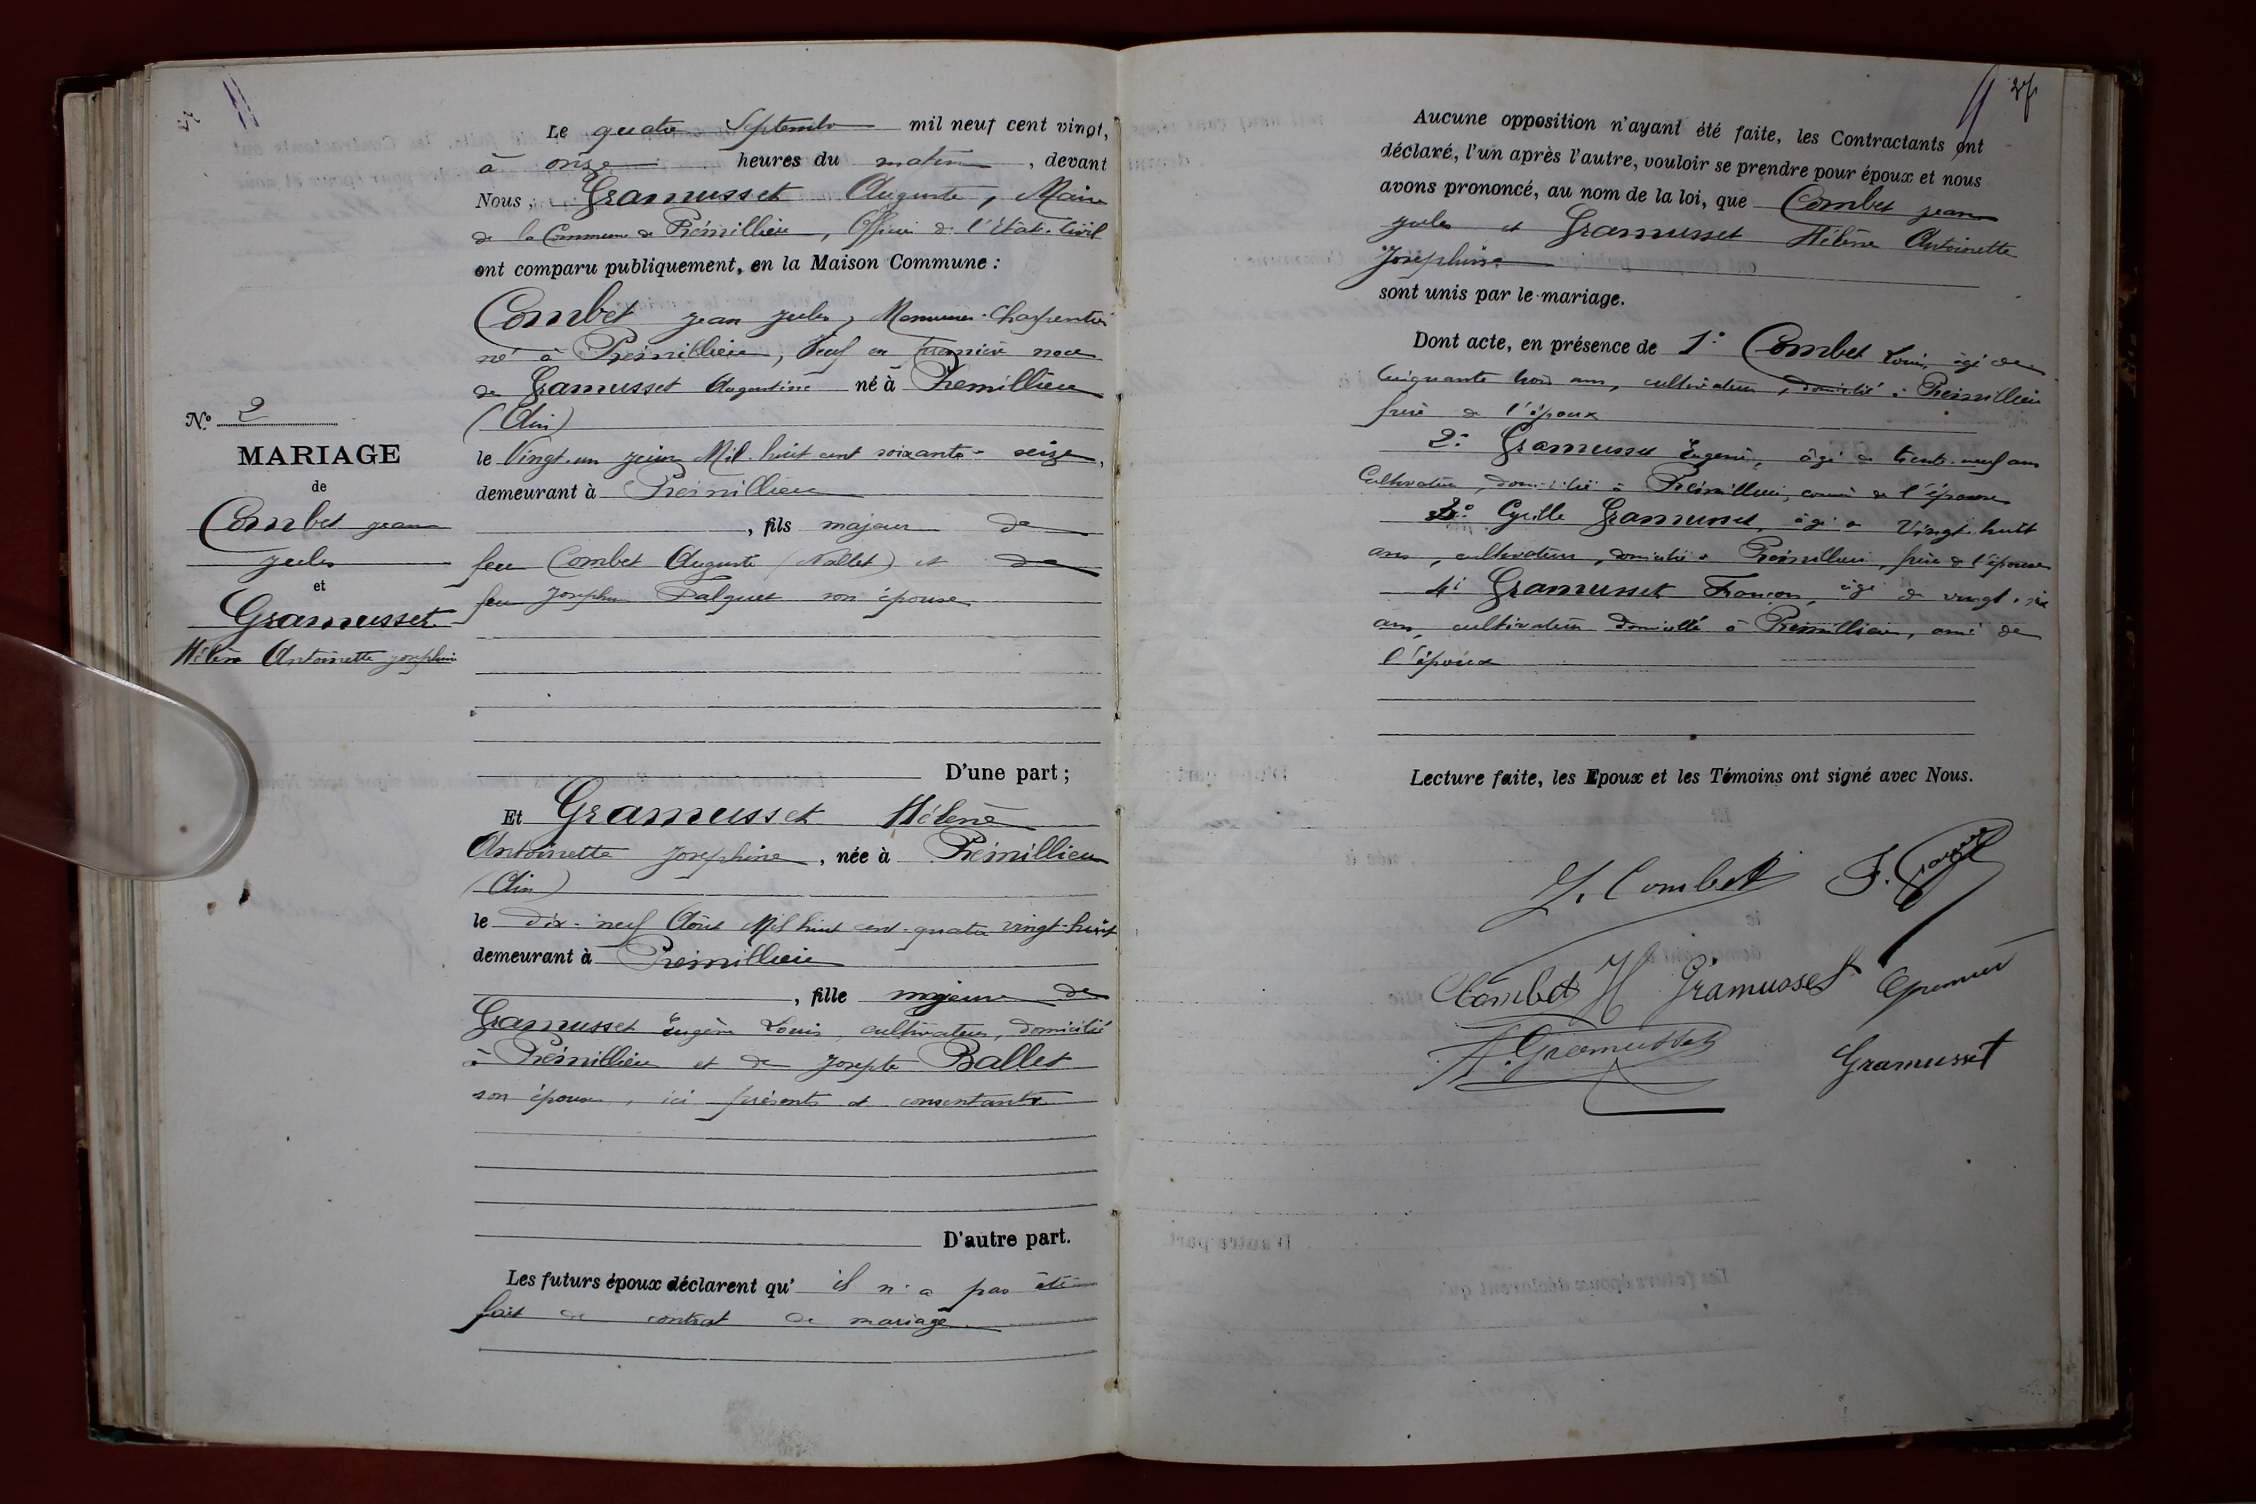 N.° 2
MARIAGE
de
Combet jean
jules
et
Gramusset
Hélène Antoinette joséphine
Le quatre Septembre mil neuf cent vingt,
à onze heures du matin, devant
Nous, Gramusset Auguste, Maire
de la Commune de Prémillieu, Officier de l'état-civil
ont comparu publiquement, en la Maison Commune :
Combet jean jules, Menuisier-Charpentier
né à Prémillieu, Veuf en première noce
de Gramusset Augustine né à Prémillieu
(Ain)
le Vingt-un juin Mil huit cent soixante-seize,
demeurant à Prémillieu
, fils majeur de
feu Combet Auguste (Nallet) et de
feu Joséphine son épouse
D'une part ;
Et Gramusset Hélène
Antoinette Joséphine, née à Prémillieu
(Ain)
le dix-neuf Août Mil huit cent-quatre vingt-huit
demeurant à Prémillieu
, fille majeure de
Gramusset Eugène Louis, cultivateur, domicilié
à Prémillieu et de Josepte Ballet
son épouse, ici présents et consentants
D'autre part.
Les futurs époux déclarent qu' il n'a pas été
fait de contrat de mariage
27
Aucune opposition n'ayant été faite, les Contractants ont
déclaré, l'un après l'autre, vouloir se prendre pour époux et nous
avons prononcé, au nom de la loi, que Combet jean
jules et Gramusset Hélène Antoinette
Joséphine
sont unis par le mariage.
Dont acte, en présence de 1° Combet Louis, âgé de
Cinquante trois ans, cultivateur, domicilié à Prémillieu
frère de l'époux
2° Gramusset Eugène, âgé de trente-neuf ans
Cultivateur, domicilié à Prémillieu, cousin de l'épouse
3° Cyrille Gramusset, âgé de Vingt-huit
ans, cultivateur, domicilié à Prémillieu, frère de l'épouse
4° Gramusset François, âgé de vingt-six
ans, cultivateur domicilié à Prémillieu, ami de
l'époux
Lecture faite, les Epoux et les Témoins ont signé avec Nous.
J. Combet
Combet H Gramusset
A. Gramusset
Gramusset